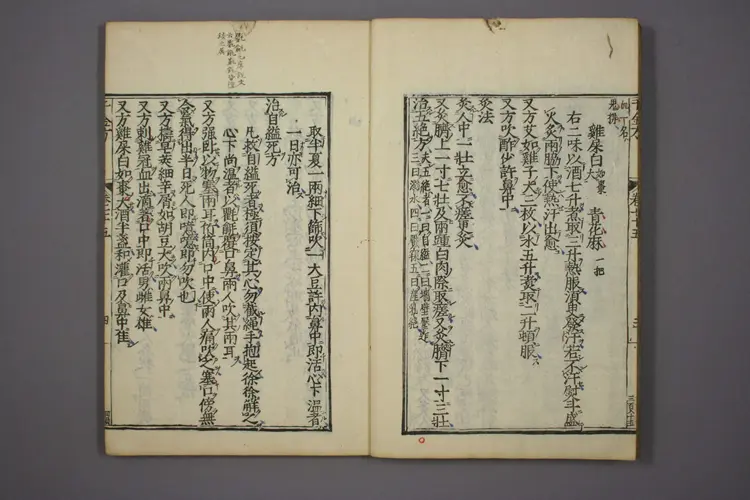 雞屎白如棗大 青花麻一把
右二味以酒七升煮取三升熱服須臾發汗若不汗熨斗盛
火炙兩脇下使熱汗出愈
又方艾如雞子大三枚以水五升煮取二升頓服
又方吹酢少許鼻中
灸法
灸人中一壯立愈不瘥更灸
又灸臍上一寸七壯及兩踵白肉際取瘥又灸臍下一寸三壯
治五絕方夫五絕者一曰自縊二曰墻壁壓迮三曰溺水四曰魘寐五曰產乳絕
取半夏一兩細下篩吹一大豆許內鼻中即活心下溫者
一日亦可治
治自縊死方
凡救自縊死者極須按定其心勿截繩手抱起徐徐解之
心下尚溫者以氍毹覆口鼻兩人吹其兩耳
又方強臥以物塞兩耳竹筒內口中使兩人痛吹之塞口傍無
令氣得出半日死人即噫噫即勿吹也
又方擣皂莢細辛屑如胡豆大吹兩鼻中
又方刺雞冠血出滴著口中即活男雌女雄
又方雞屎白如棗大酒半盞和灌口及鼻中佳
千金方 卷二十五 四